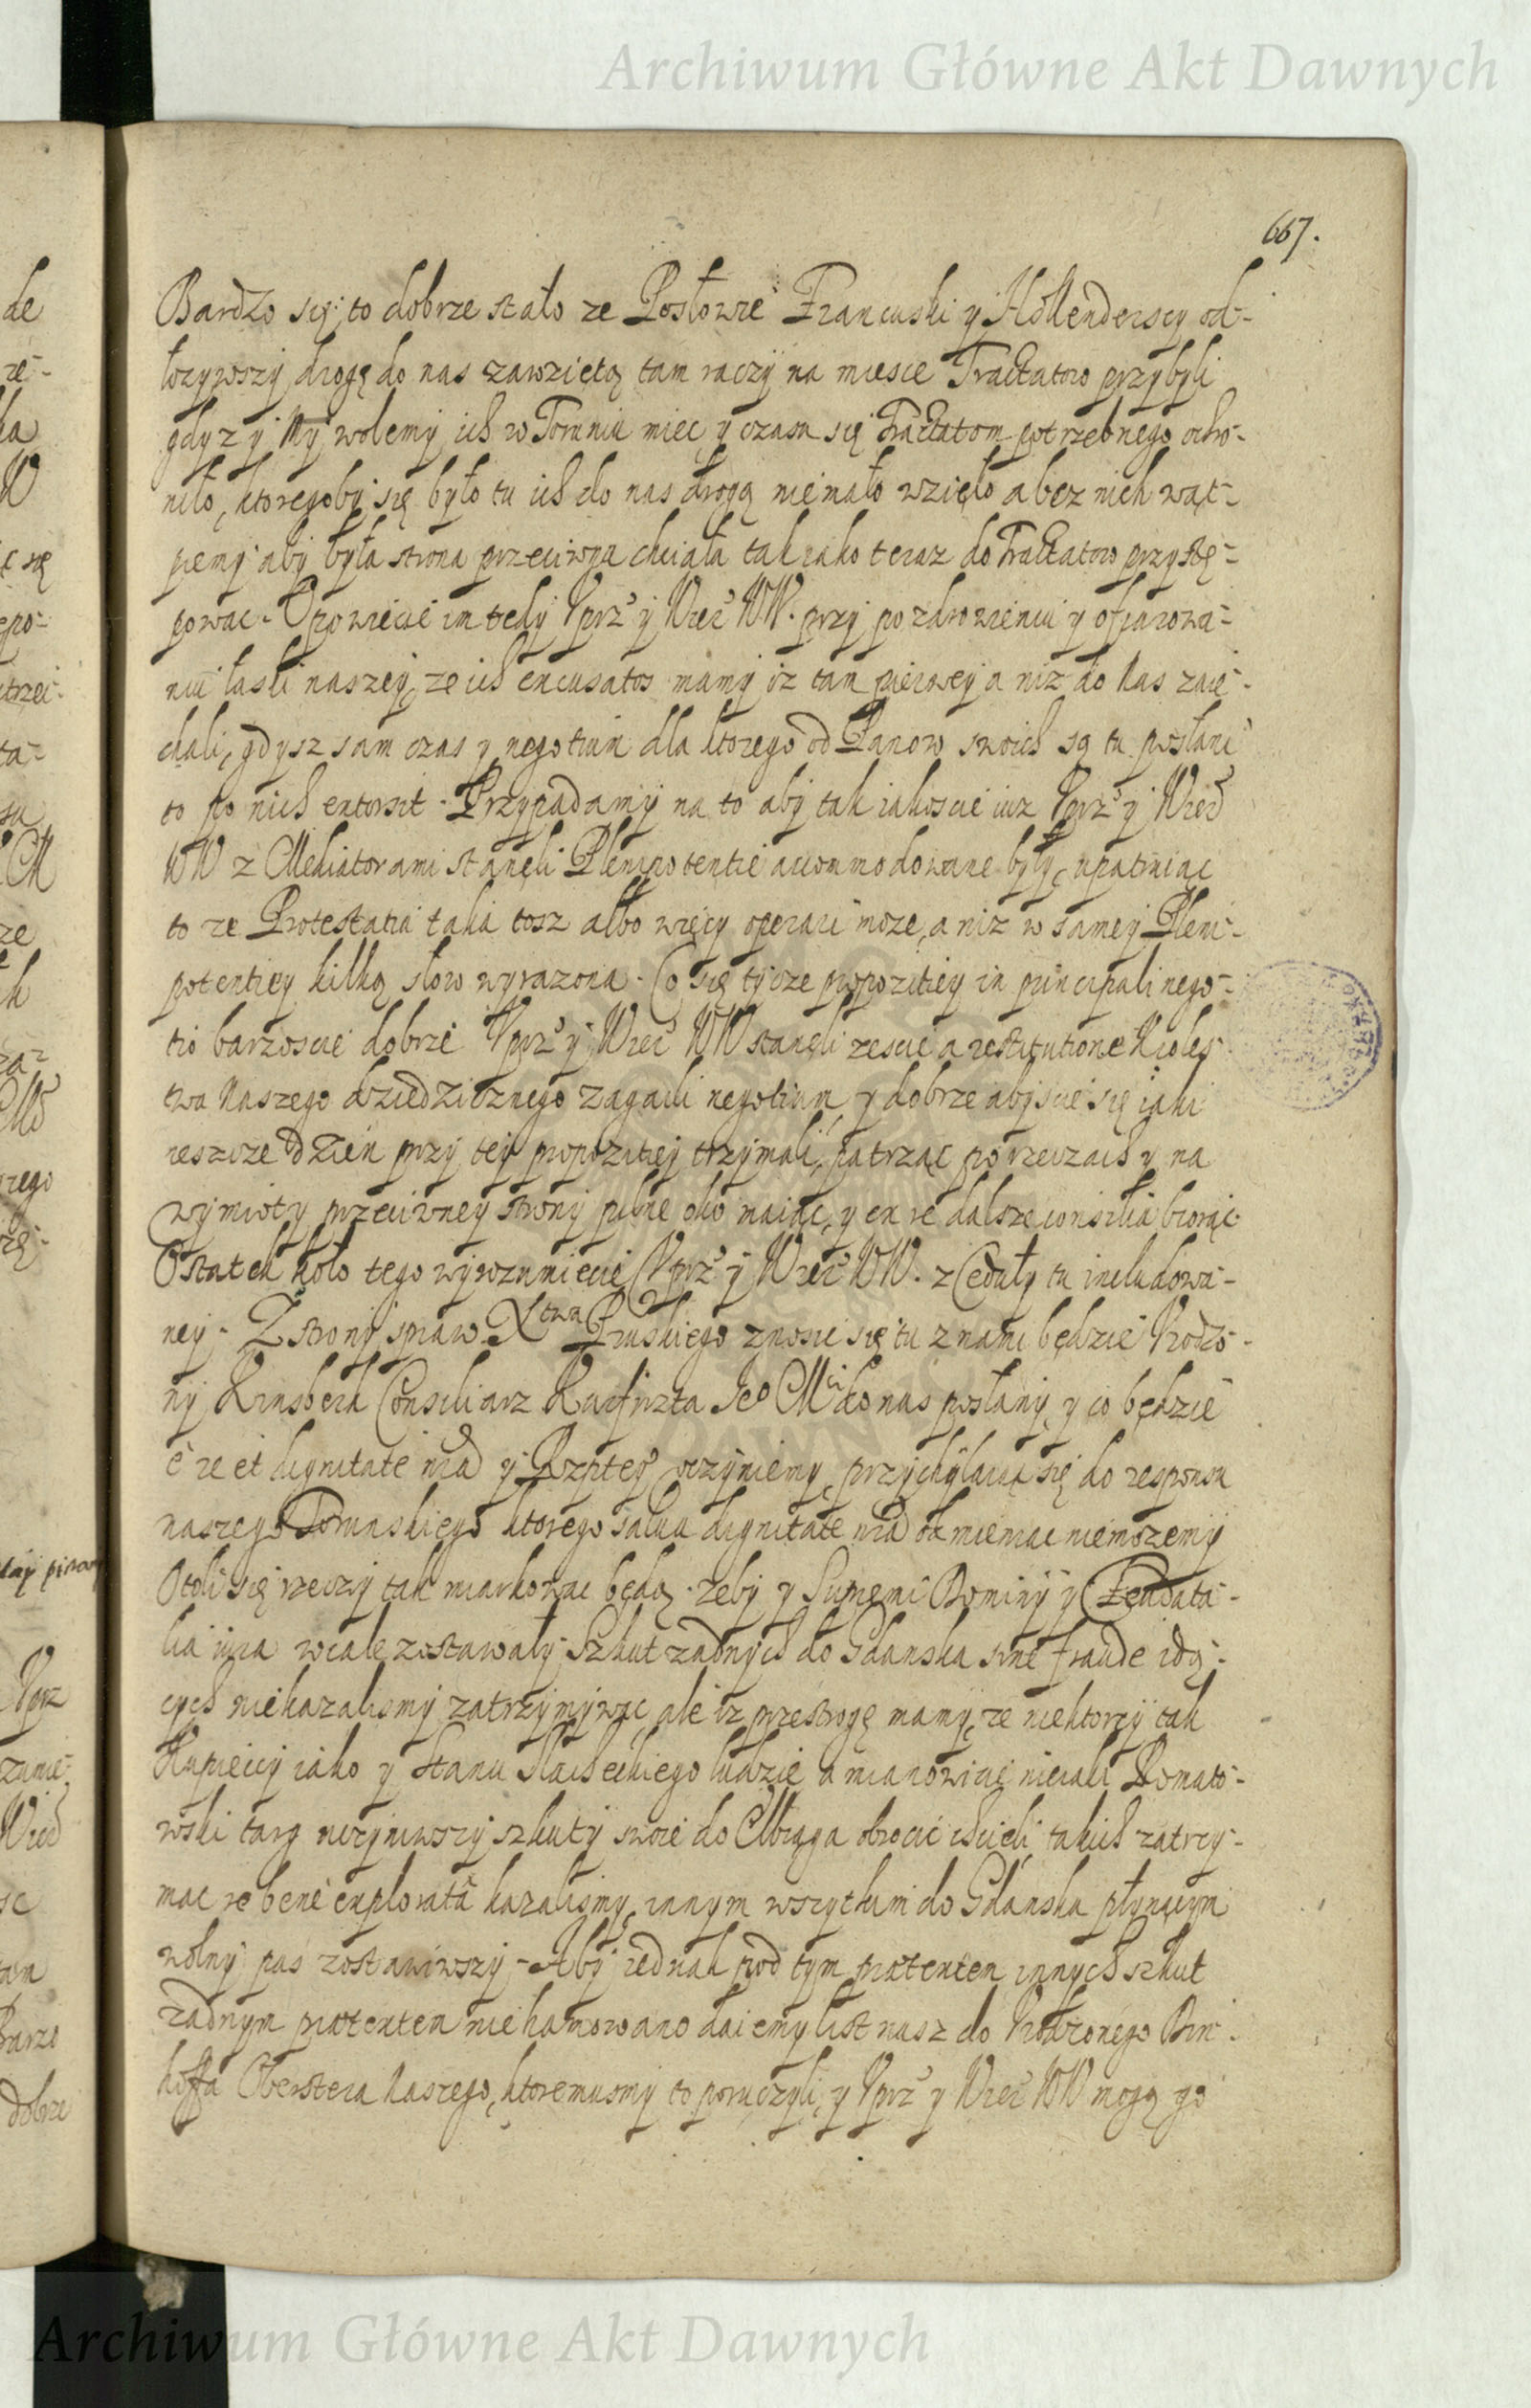 Archiwum Główne Akt Dawnych
667.
Bardzo się to dobrze stało ze Posłowie Francuski y Hollenderscy od-
łozywszy drogę do nas zawziętą tam raczy na miesce Tractatow przybyli
gdyz y My wolemy ich w Toruniu miec y czasu się Tractatom potrzebnego ochro-
niło, ktoregoby się było tu ich do nas drogą niemało wzięło a bez nich wąt-
piemy aby była strona przeciwna chciała tak iako teraz do Tractatow przystę-
powac. Opowiecie im tedy Vprz y Wier WW. przy pozdrowieniu y ofiarowa-
niu łaski naszey, ze ich excusatos mamy iz tam pierwey a niz do Nas zaie-
chali, gdysz sam czas y negotium dla ktorego od Panow swoich są tu posłani
to po nich extorsit. Przypadamy na to aby tak iakoscie iuz Vprz y Wier
WW z Mediatorami stanęli Plenipotentie accommodowane były, upatruiąc
to ze Protestatia taka tosz albo więcy operari moze, a niz w samey Pleni-
potentiey kilką słow wyrazona. Co się tycze propozitiey in principali nego-
tio barzoscie dobrze Vprz y Wier WW stanęli zescie a restitutione Kroles
twa Naszego dziedzicznego zagaili negotium, y dobrze abyscie się iaki
ieszcze dzien przy tey propozitiey trzymali, patrząc po rzeczach y na
wymioty przeciwney strony pilne oko maiąc, y ex re dalsze consilia biorąc
Ostatek koło tego wyrozumiecie Vprz y Wier WW. z Ceduły tu includowa-
ney. Z strony spraw Xtwa Pruskiego znosic się tu z nami będzie Vrodzo-
ny Consiliarz Kurfirszta Jeo Mci do nas posłany, y co będzie
e re et dignitate nra y Rzptey uczyniemy, przychylaiąc się do responsu
naszego Torunskiego ktorego salva dignitate nra odmieniac niemozemy
Otoli się rzeczy tak miarkowac będą. zeby y Supremi Dominy y Feudata-
lia iura wcale zostawały. Szkut zadnych do Gdanska sine fraude idą-
cych niekazalismy zatrzymywac, ale iz przestrogę mamy, ze niektorzy tak
Kupieccy iako y stanu Slacheckiego ludzie a mianowicie nieiaki Domato-
wski targ uczyniwszy szkuty swoie do Elbiąga obrocic chcieli, takich zatrzy-
mac re bene explorata kazalismy, innym wszytkim do Gdanska płynącym
wolny pas zostawiwszy. Aby iednak pod tym praetextem innych szkut
zadnym praetextem niehamowano daiemy list nasz do Vrodzonego Den-
hoffa Oberstera Naszego, ktoremusmy to poruczyli, y Vprz y Wier WW mogą go
Archiwum Główne Akt Dawnych